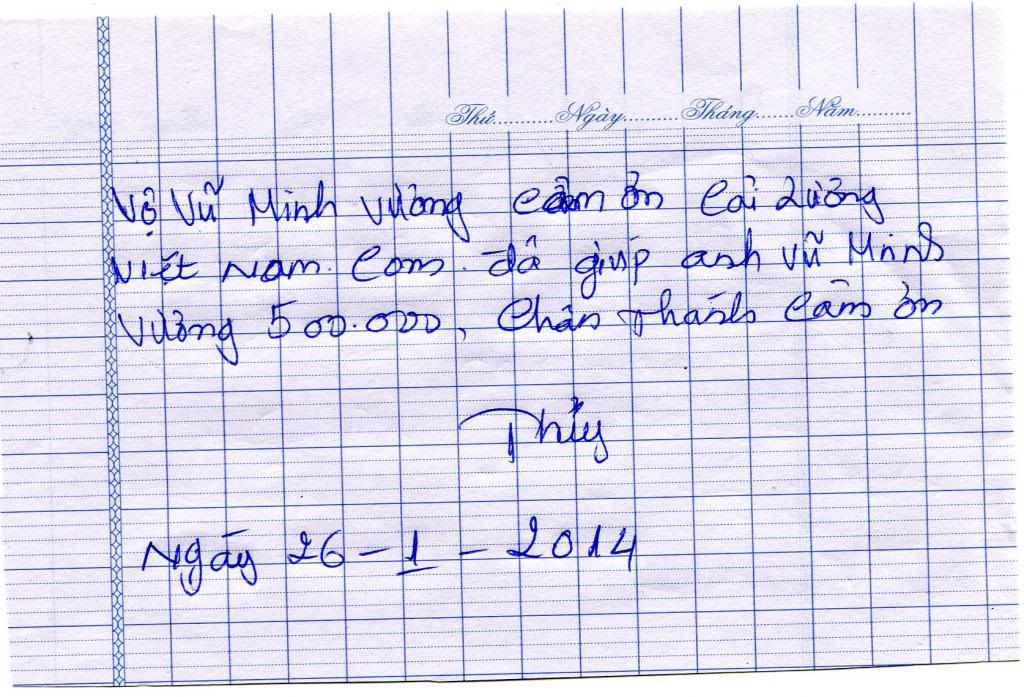 Thứ..........Ngày..........Tháng.......Năm..........
Vợ Vũ Minh Vương cảm ơn Cải Lương
Việt Nam. Com. đã giúp anh Vũ Minh
Vương 500.000, Chân thành cảm ơn
Thủy
Ngày 26 - 1 - 2014